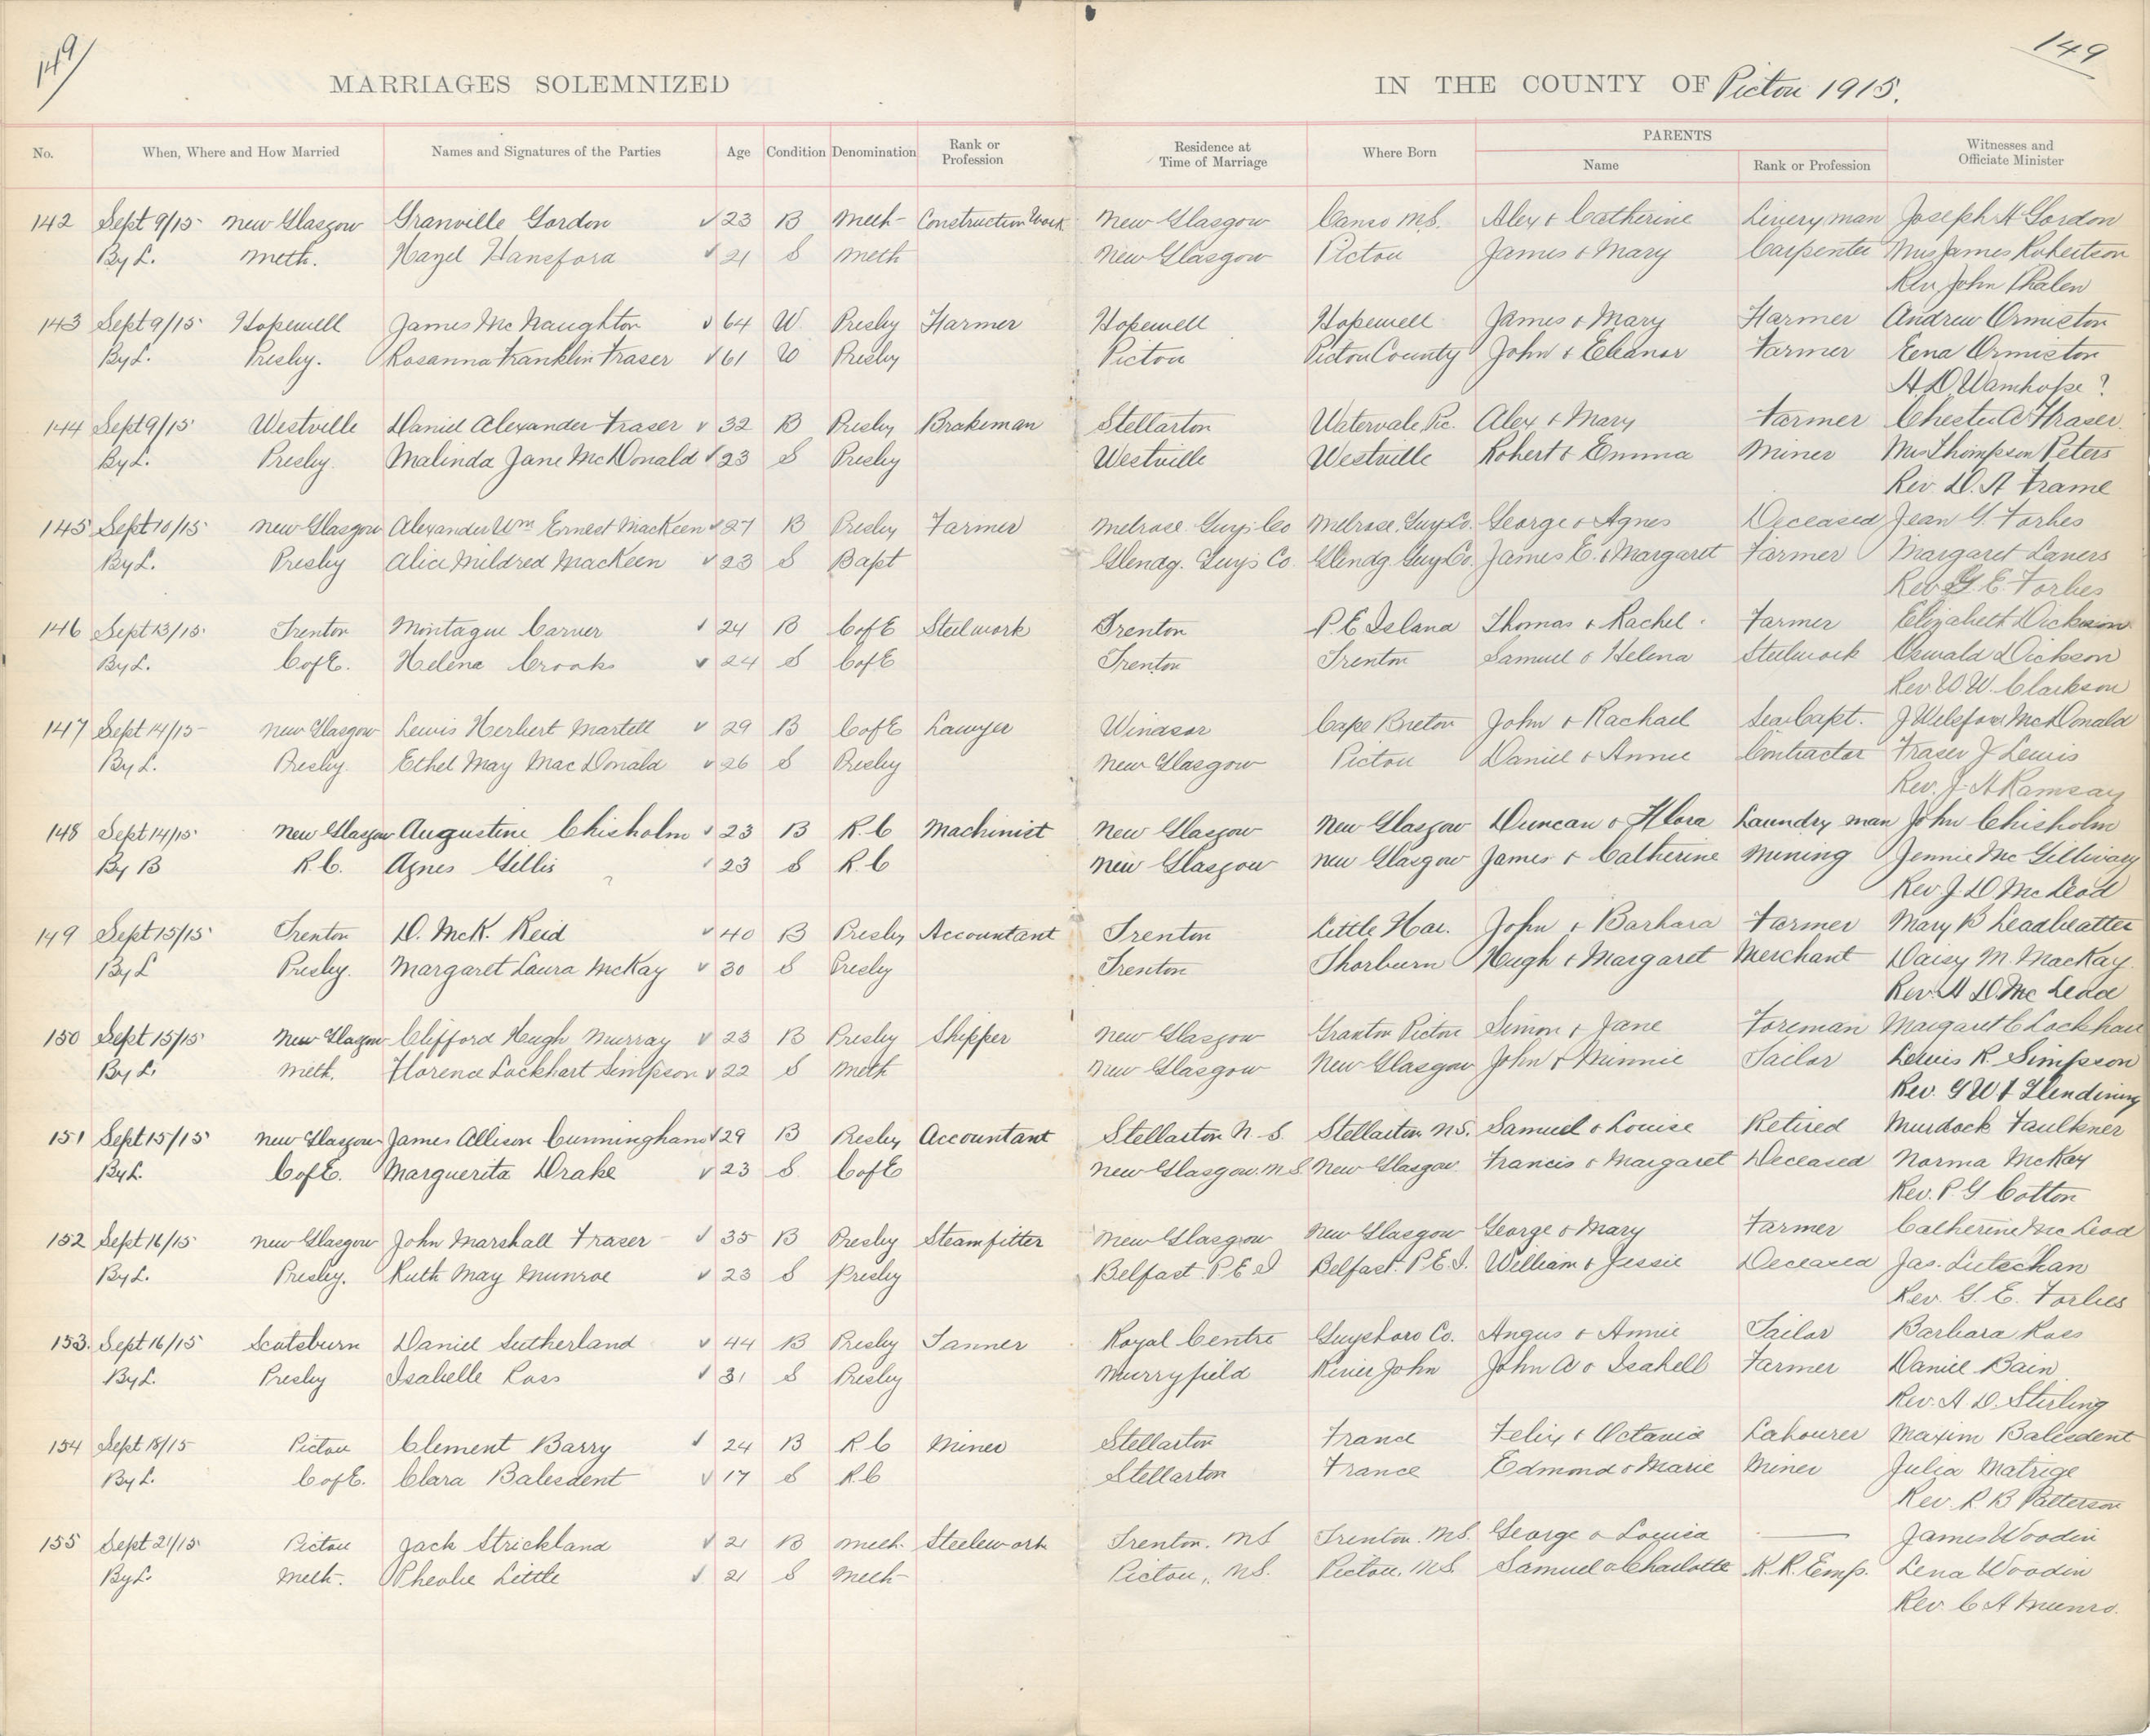 149
149
MARRIAGES SOLEMNIZED IN THE COUNTY OF Pictou 1915.
No. When, Where and How Married Names and Signatures of the Parties Age Condition Denomination Rank or Profession Residence at Time of Marriage Where Born PARENTS Name Rank or Profession Witnesses and Officiate Minister
142 Sept 9/15 New Glasgow Granville Gordon ✓ 23 B Meth Construction Work New Glasgow Canso N.S. Alex & Catherine Livery man Joseph H Gordon
By L. Meth. Hazel Hansford ✓ 21 S Meth New Glasgow Pictou James & Mary Carpenter Mrs James Robertson
Rev John Phalen
143 Sept 9/15 Hopewell James McNaughton ✓ 64 W Presby Farmer Hopewell Hopewell James & Mary Farmer Andrew Ormiston
By L. Presby. Rosanna Franklin Fraser ✓ 61 W Presby Pictou Pictou County John & Eleanor Farmer Eena Ormiston
A. D. Wamhope ?
144 Sept 9/15 Westville Daniel Alexander Fraser ✓ 32 B Presby Brakeman Stellarton Watervale, Pic. Alex & Mary Farmer Chester A Fraser
By L. Presby. Malinda Jane McDonald ✓ 23 S Presby Westville Westville Robert & Emma Miner Mrs Thompson Peters
Rev. D. A Frame
145 Sept 10/15 New Glasgow Alexander Wm Ernest MacKeen ✓ 27 B Presby Farmer Melrose. Guys. Co Melrose. Guy Co. George & Agnes Deceased Jean G. Forbes
By L. Presby Alice Mildred MacKeen ✓ 23 S Bapt Glendg. Guys Co. Glendg. Guy Co. James E. & Margaret Farmer Margaret Laners
Rev G. E. Forbes
146 Sept 13/15 Trenton Montague Carver ✓ 24 B C of E Steelwork Trenton P. E Island Thomas & Rachel Farmer Elizabeth Dickson
By L. C of E. Helena Crooks ✓ 24 S C of E Trenton Trenton Samuel & Helena Steelwork Oswald Dickson
Rev W. W. Clarkson
147 Sept 14/15 New Glasgow Lewis Herbert Martell ✓ 29 B C of E Lawyer Windsor Cape Breton John & Rachael Sea Capt. J Welsford McDonald
By L. Presby. Ethel May MacDonald ✓ 26 S Presby New Glasgow Pictou Daniel & Annie Contractor Fraser J Lewis
Rev. J. A Ramsay
148 Sept 14/15 New Glasgow Augustine Chisholm ✓ 23 B R. C Machinist New Glasgow New Glasgow Duncan & Flora Laundry man John Chisholm
By B R. C. Agnes Gillis ✓ 23 S R. C New Glasgow New Glasgow James & Catherine Mining Jennie McGillivary
Rev. J. D McLeod
149 Sept 15/15 Trenton D. McK. Reid ✓ 40 B Presby Accountant Trenton Little Har. John & Barbara Farmer Mary B Leadbeatter
By L Presby. Margaret Laura McKay ✓ 30 S Presby Trenton Thorburn Hugh & Margaret Merchant Daisy M. MacKay
Rev. A D McLeod
150 Sept 15/15 New Glasgow Clifford Hugh Murray ✓ 23 B Presby Shipper New Glasgow Granton Pictou Simon & Jane Foreman Margaret C Lockhart
By L. Meth. Florence Lockhart Simpson ✓ 22 S Meth New Glasgow New Glasgow John & Minnie Tailor Lewis R Simpson
Rev. G W F Glendining
151 Sept 15/15 New Glasgow James Allison Cunningham ✓ 29 B Presby Accountant Stellarton N. S. Stellarton N.S. Samuel & Louise Retired Murdock Faulkner
By L. C of E. Marguerita Drake ✓ 23 S C of E New Glasgow. N S New Glasgow. Francis & Margaret Deceased Norma McKay
Rev. P. G Cotton
152 Sept 16/15 New Glasgow John Marshall Fraser ✓ 35 B Presby Steamfitter New Glasgow New Glasgow George & Mary Farmer Catherine McLeod
By L. Presby. Ruth May Munroe ✓ 23 S Presby Belfast P E I Belfast. P. E. I. William & Jessie Deceased Jas. Lutechan
Rev. G. E. Forbes
153. Sept 16/15 Scotsburn Daniel Sutherland ✓ 44 B Presby Tanner Royal Centre Guysboro Co. Angus & Annie Tailor Barbara Ross
By L. Presby Isabelle Ross ✓ 31 S Presby Murryfield River John John A & Isabell Farmer Daniel Bain
Rev. A D. Stirling
154 Sept 18/15 Pictou Clement Barry ✓ 24 B R. C Miner Stellarton France Felix & Octavia Labourer Maxim Balesdent
By L. C of E. Clara Balesdent ✓ 17 S R. C Stellarton France Edmond & Marie Miner Julia Matrige
Rev. R. B Patterson
155 Sept 21/15 Pictou Jack Strickland ✓ 21 B Meth. Steelework Trenton. N S Trenton. N S. George & Louisa — James Woodin
By L. Meth. Pheobe Little ✓ 21 S Meth Pictou, N S. Pictou, N S Samuel & Charlotte R. R. Emp. Lena Woodin
Rev. C A Munro.